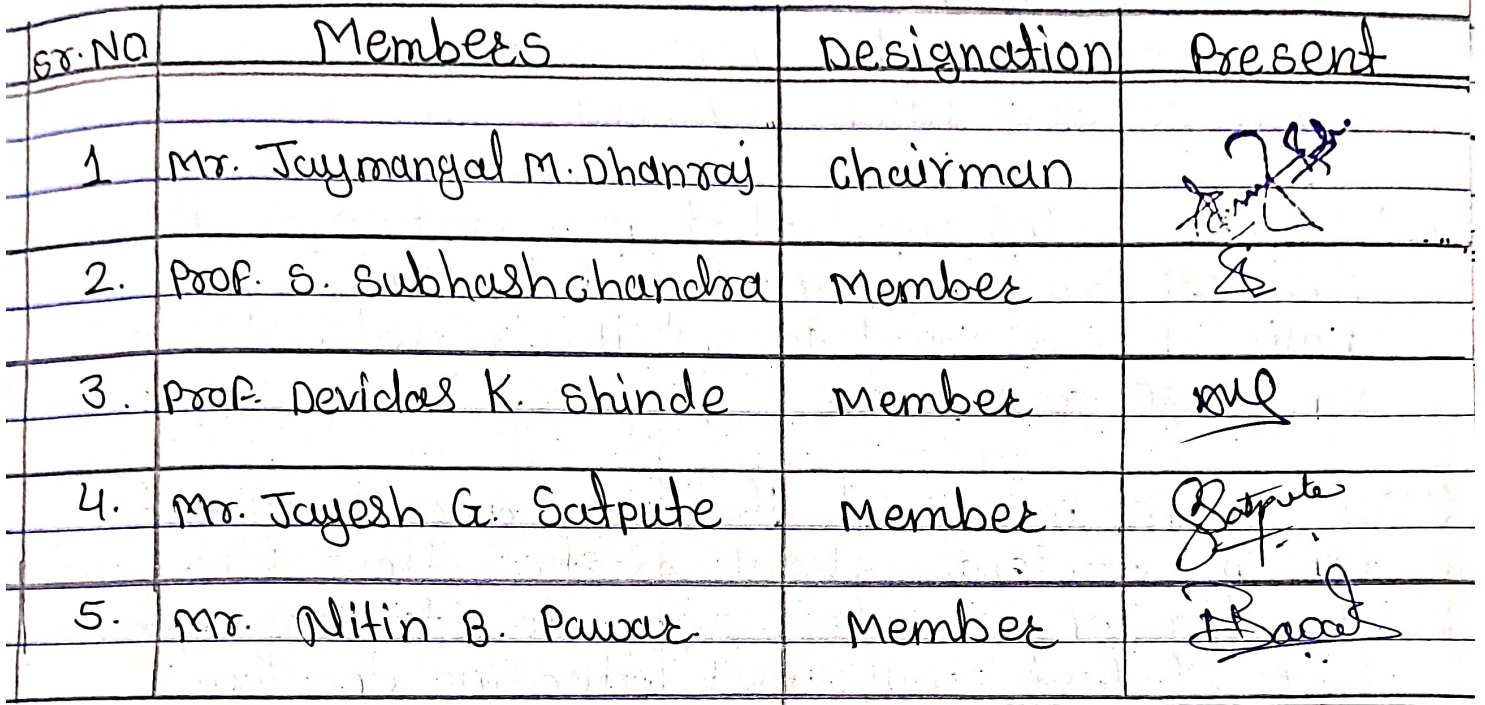 Sr. No Members Designation Present
1 Mr. Jaymangal M. Dhanraj Chairman
2. Prof. S. Subhashchandra Member
3. Prof. Devidas K. Shinde Member
4. Mr. Jayesh G. Satpute Member Satpute
5. Mr. Nitin B. Pawar Member